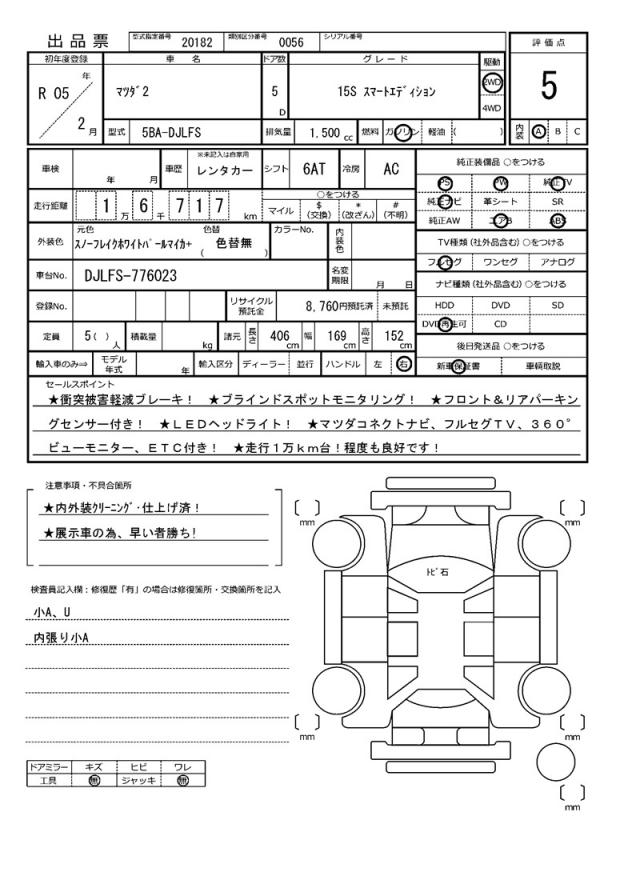 出品票 型式指定番号 20182 類別区分番号 0056 シリアル番号
初年度登録 車名 ドア数 グレード 駆動 評価点
R 05 年 2 月 マツダ2 5 D 15S スマートエディション 2WD 4WD 5
型式 5BA-DJLFS 排気量 1.500 cc 燃料 ガソリン 軽油 ( ) 内装 A B C
車検 年 月 車歴 ※未記入は自家用 レンタカー シフト 6AT 冷房 AC
純正装備品 ○をつける
PS PW 純正TV
純正ナビ 革シート SR
純正AW エアB ABS
走行距離 1万6千717 km
○をつける
マイル $(交換) *(改ざん) #(不明)
外装色 元色 スノーフレイクホワイトパールマイカ+ 色替 ( 色替無 ) カラーNo. 内装色
TV種類(社外品含む)○をつける
フルセグ ワンセグ アナログ
車台No. DJLFS-776023 名変期限 月 日
ナビ種類(社外品含む)○をつける
HDD DVD SD
DVD再生可 CD
登録No. リサイクル預託金 8,760円預託済 未預託
定員 5( )人 積載量 kg 諸元 長さ 406cm 幅 169cm 高さ 152cm
後日発送品 ○をつける
新車保証書 車輌取説
輸入車のみ⇨ モデル年式 年 輸入区分 ディーラー 並行 ハンドル 左 右
セールスポイント
★衝突被害軽減ブレーキ! ★ブラインドスポットモニタリング! ★フロント&リアパーキン
グセンサー付き! ★LEDヘッドライト! ★マツダコネクトナビ、フルセグTV、360°
ビューモニター、ETC付き! ★走行1万km台!程度も良好です!
注意事項・不具合箇所
★内外装クリーニング・仕上げ済!
★展示車の為、早い者勝ち!
検査員記入欄:修復歴「有」の場合は修復箇所・交換箇所を記入
小A、U
内張り小A
ドアミラー キズ ヒビ ワレ
工具 無 ジャッキ 無
トビ石
mm
mm
mm
mm
mm